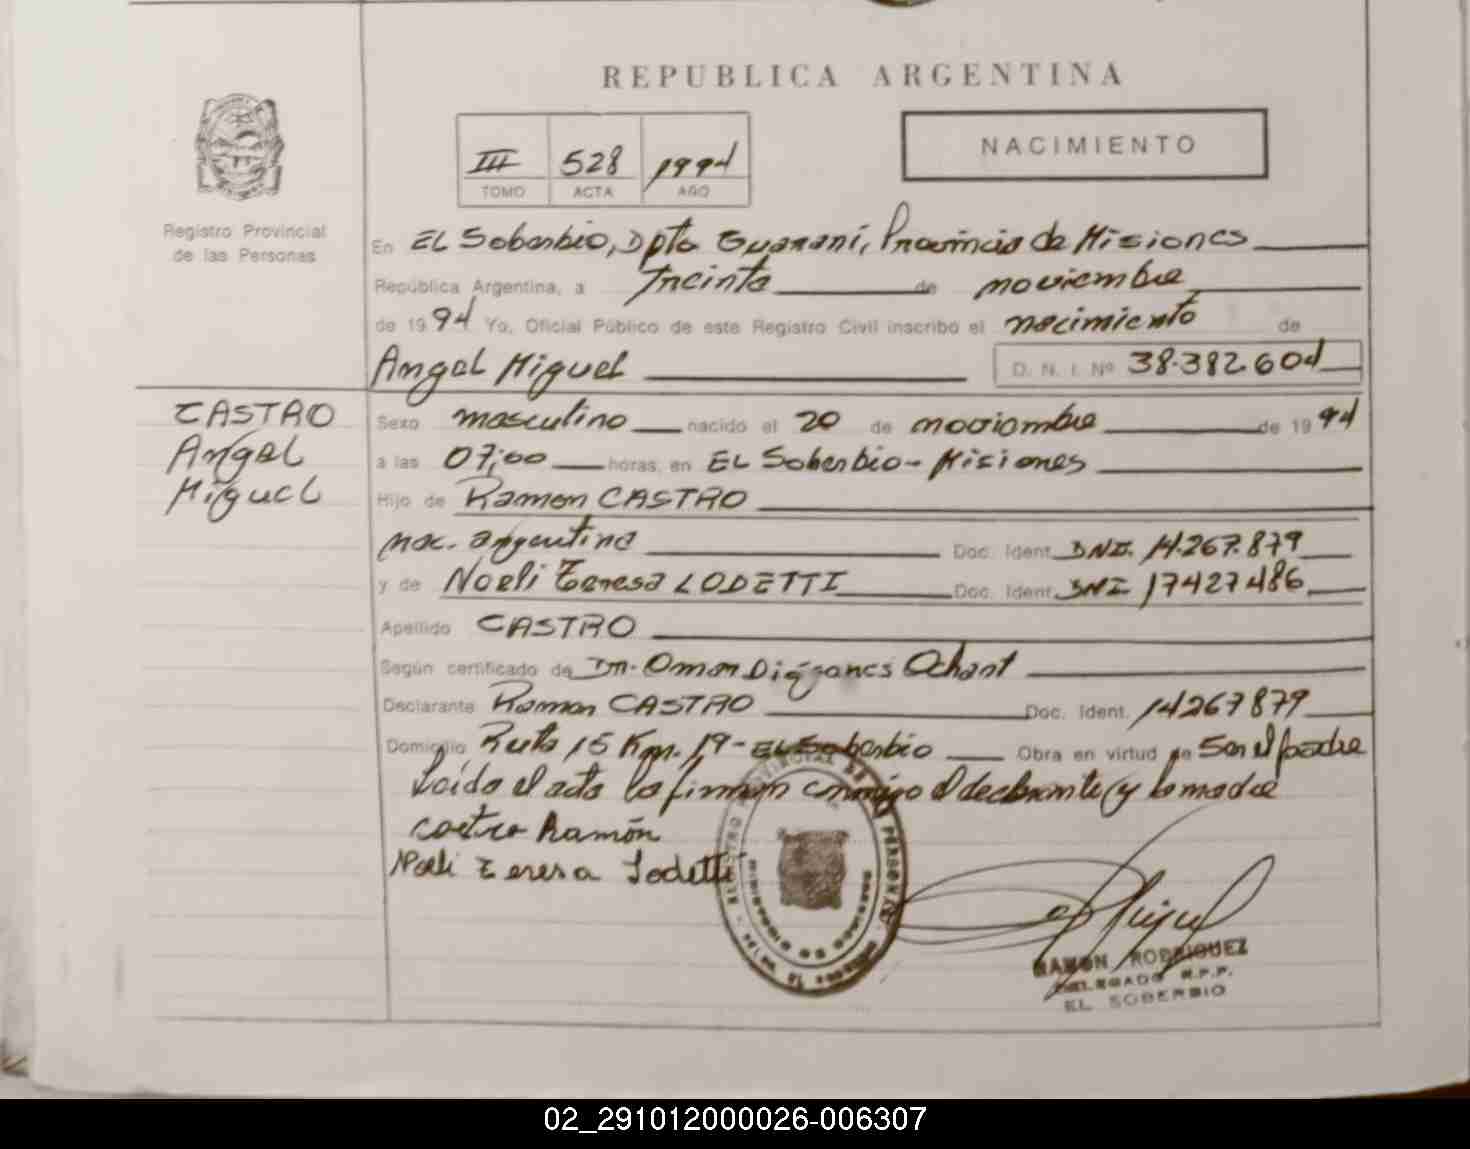 REPUBLICA ARGENTINA
NACIMIENTO
III 528 1994
TOMO ACTA AÑO
Registro Provincial
de las Personas
En EL Soberbio, Dpto Guaraní, Provincia de Misiones
República Argentina, a Treinta de noviembre
de 1994 Yo, Oficial Público de este Registro Civil inscribo el nacimiento de
Angel Miguel D. N. I. Nº 38.382.604
CASTRO
Angel
Miguel
Sexo masculino nacido el 20 de noviembre de 1994
a las 07,00 horas, en EL Soberbio - Misiones
Hijo de Ramon CASTRO
nac. argentina Doc. Ident. DNI. 14.267.879
y de Noeli Teresa LODETTI Doc. Ident. DNI 17427486
Apellido CASTRO
Según certificado de Dr. Omar Diógenes Ochant
Declarante Ramon CASTRO Doc. Ident. 14267879
Domicilio Ruta 15 Km. 19 - EL Soberbio Obra en virtud de Ser el padre
Leída el acta la firman conmigo el declarante y la madre
castro Ramón
Noeli Teresa Lodetti
REGISTRO PROVINCIAL DE LAS PERSONAS
RAMON RODRIGUEZ
DELEGADO R.P.P.
EL SOBERBIO
02_291012000026-006307